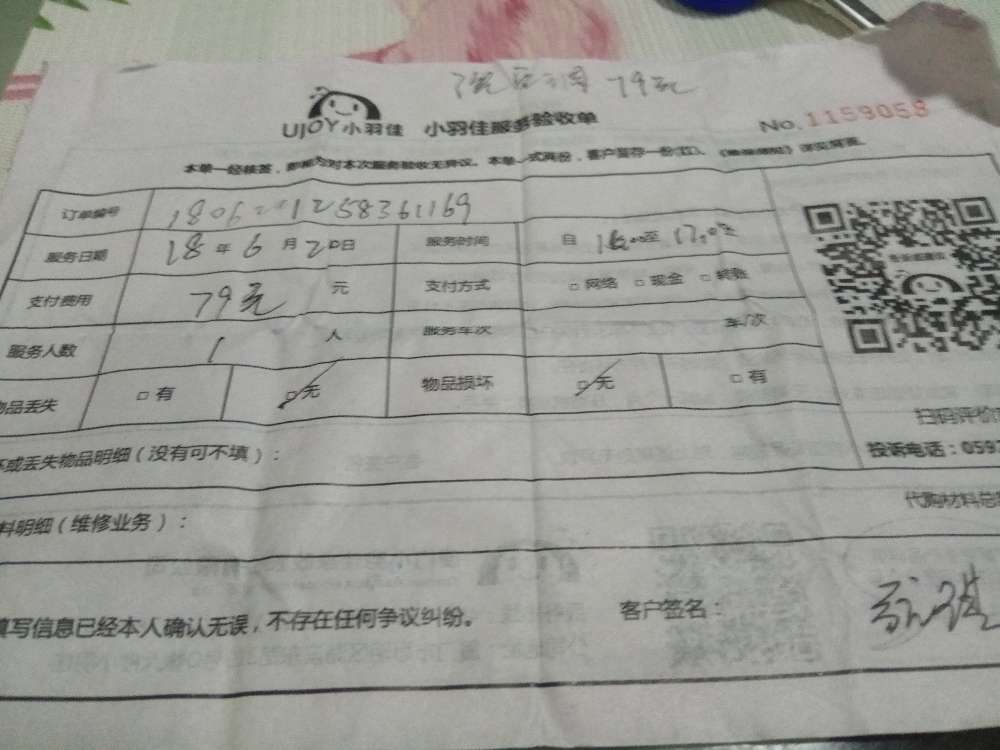 79元
UJOY小羽佳 小羽佳服务验收单
No.1159058
本单一经核签，即视为对本次服务验收无异议。本单一式两份，客户暂存一份
订单编号
服务日期 18年6月20日 服务时间 自 至 17:00
支付费用 79元 元 支付方式 □网络 □现金 □转账
服务人数 1 人 服务车次 车/次
物品丢失 □有 □无 物品损坏 □无 □有
扫码评价
或丢失物品明细（没有可不填）：
投诉电话：059
料明细（维修业务）：
代购材料总
填写信息已经本人确认无误，不存在任何争议纠纷。 客户签名：